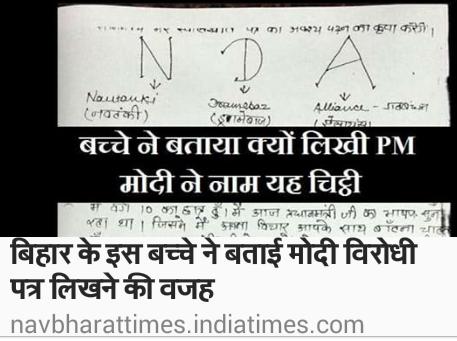 पत्र का अवश्य
N D A
Nautanki
(नवटंकी)
Draamebaz
(ड्रामेबाज)
Alliance -
बच्चे ने बताया क्यों लिखी PM
मोदी ने नाम यह चिट्ठी
10 का छात्र हूँ। मैं आज प्रधानमंत्री जी का भाषण सुन
रहा था। जिसमें मैं अपना विचार आपके साथ बाँटना
बिहार के इस बच्चे ने बताई मोदी विरोधी
पत्र लिखने की वजह
navbharattimes.indiatimes.com